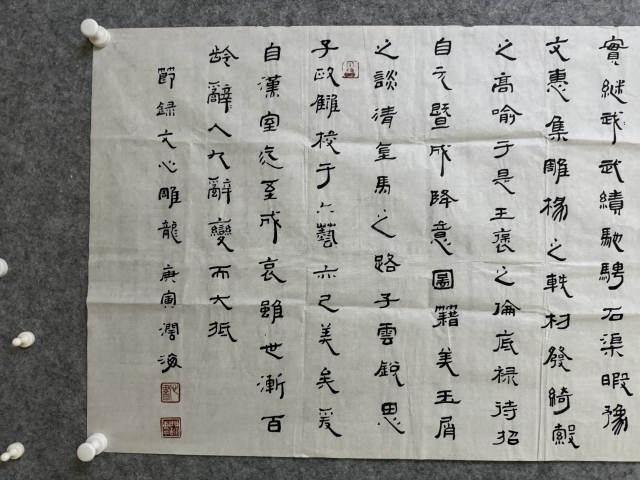 實継武武績馳騁石渠暇豫
文惠集雕楊之軼材發綺縠
之高喻于是王褒之倫底禄待招
自元暨成降意圖籍美玉屑
之談清皇馬之路子雲銳思
子政讎校于六藝亦已美矣爰
自漢室迄至成哀雖世漸百
齡辭人九辭變而大抵
節録文心雕龍庚寅潤海